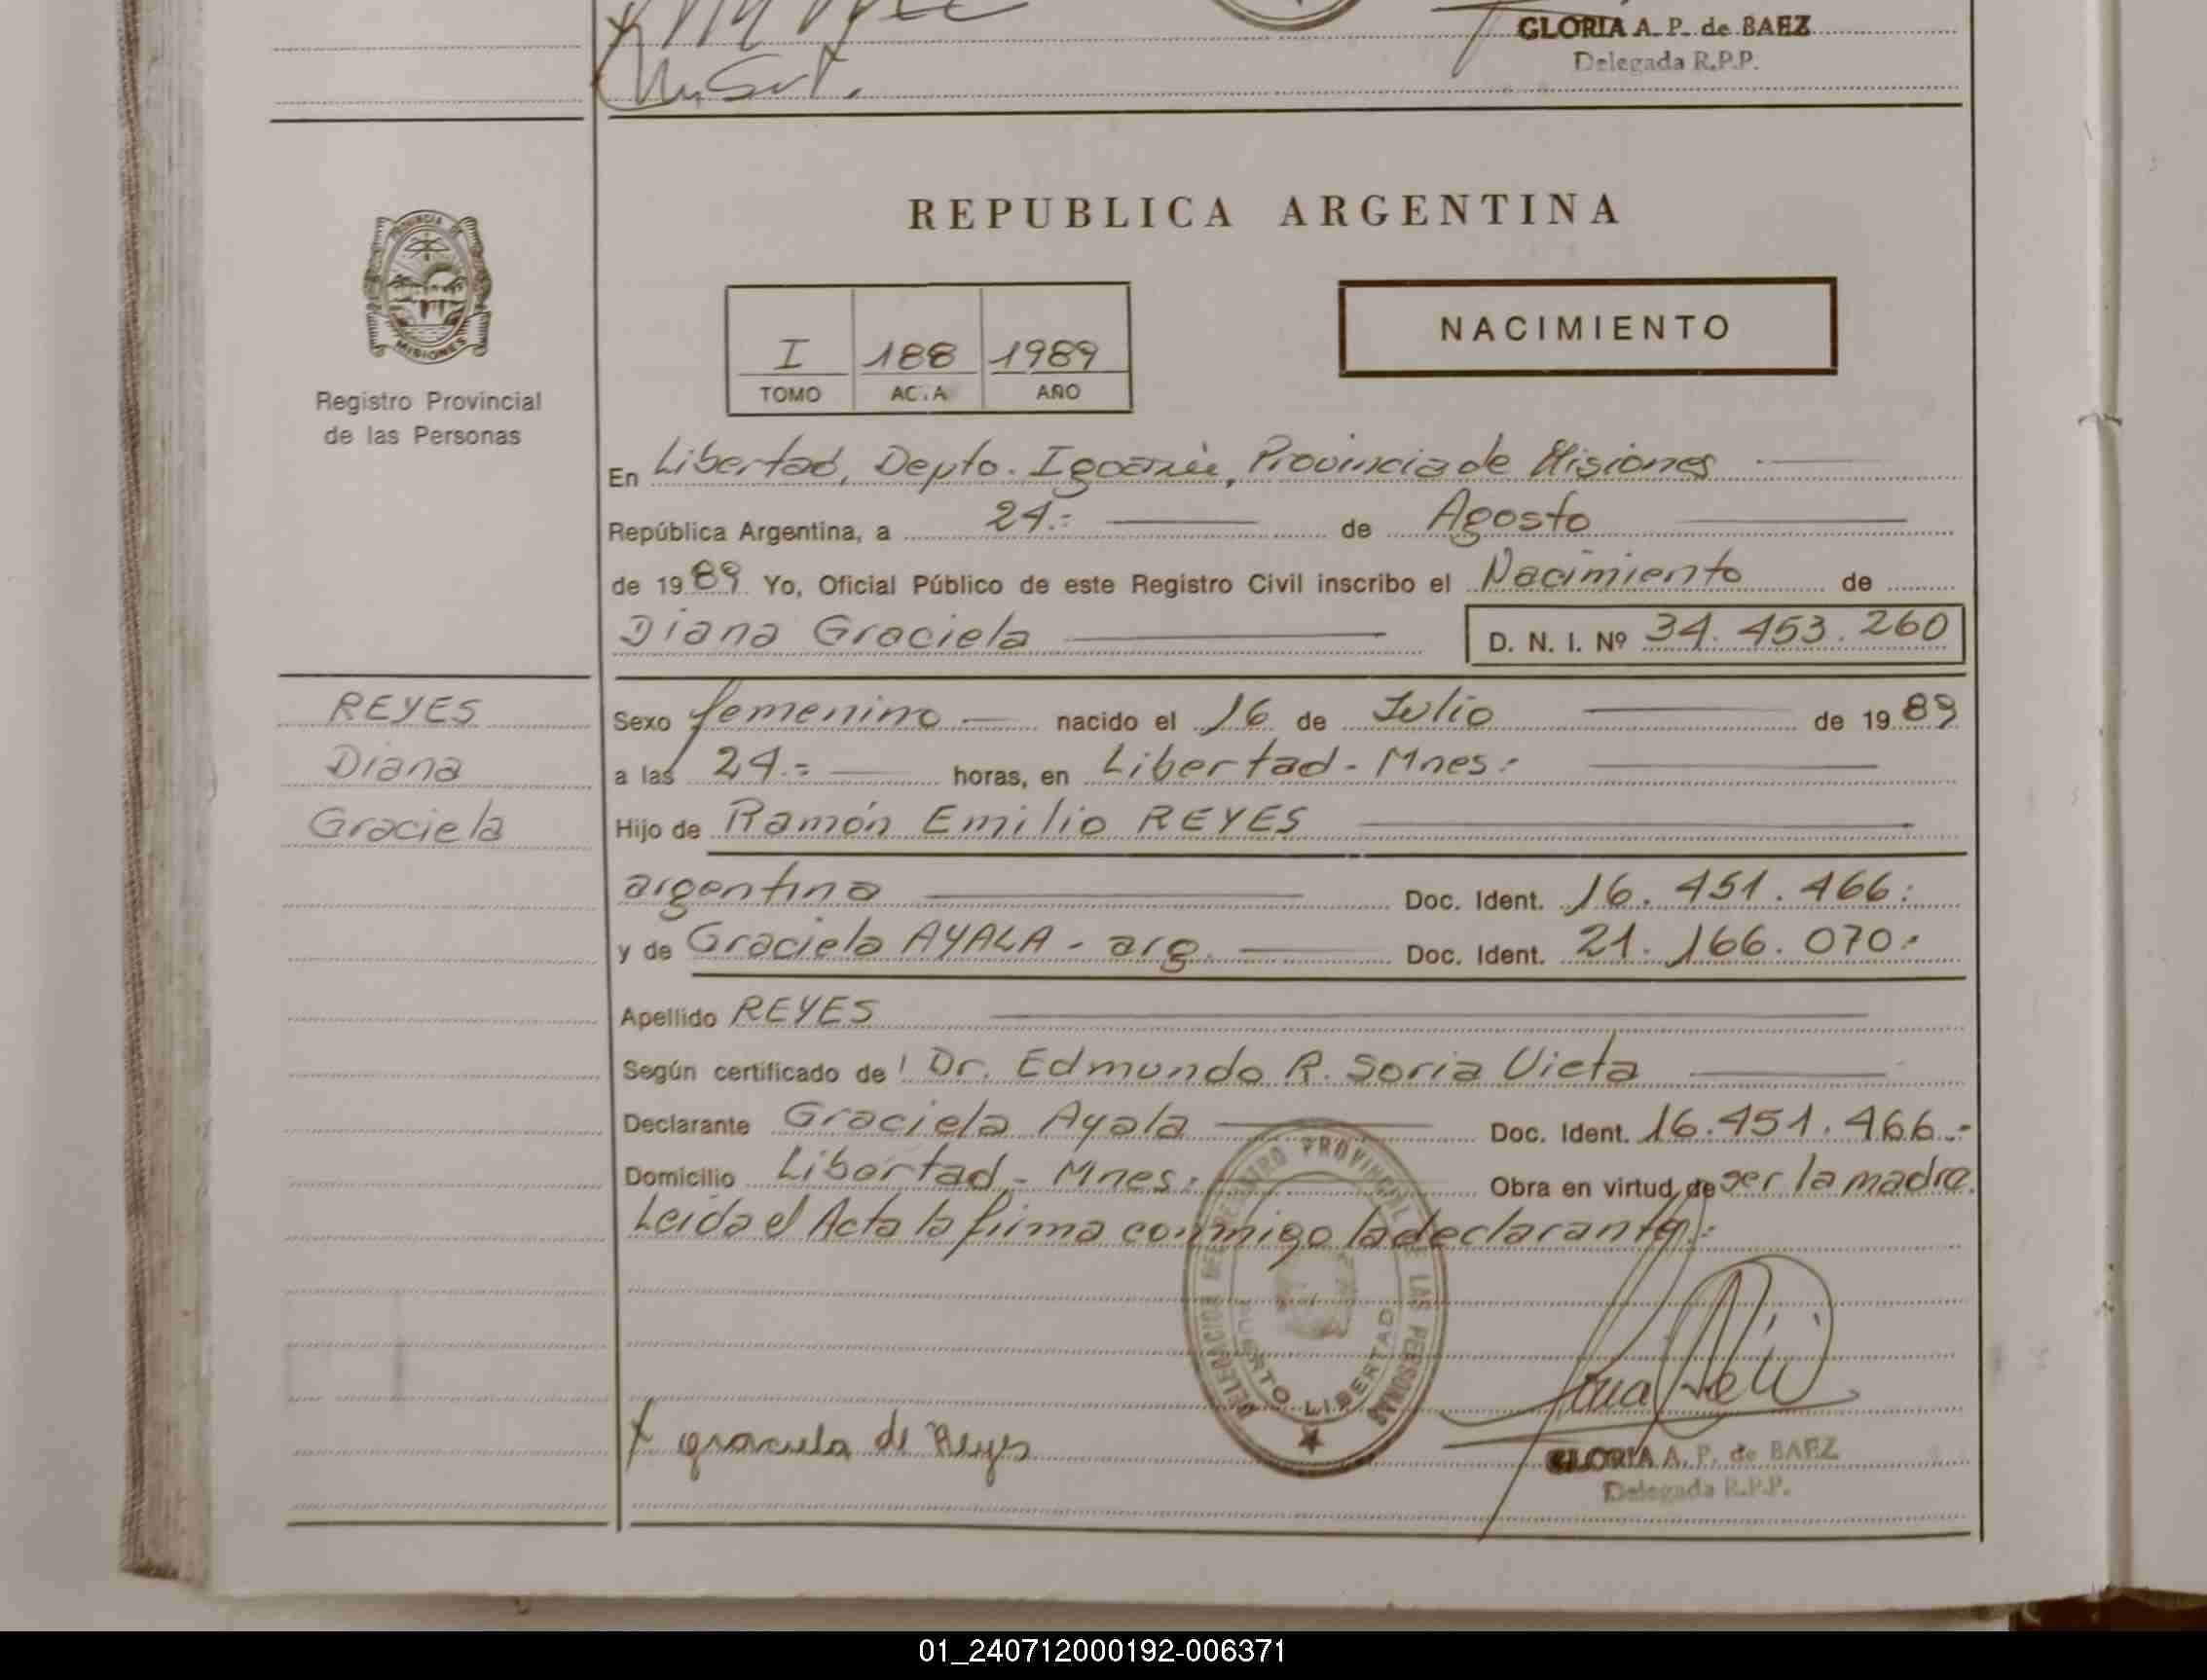 GLORIA A. P. de BAEZ
Delegada R.P.P.
PROVINCIA DE
MISIONES
Registro Provincial
de las Personas
REPUBLICA ARGENTINA
NACIMIENTO
I 188 1989
TOMO ACTA AÑO
En Libertad, Depto. Iguazú, Provincia de Misiones
República Argentina, a 24.- de Agosto
de 1989 Yo, Oficial Público de este Registro Civil inscribo el Nacimiento de
Diana Graciela D. N. I. Nº 34.453.260
REYES
Diana
Graciela
Sexo femenino nacido el 16 de Julio de 1989
a las 24.= horas, en Libertad - Mnes.-
Hijo de Ramón Emilio REYES
argentino Doc. Ident. 16.451.466.
y de Graciela AYALA - arg. Doc. Ident. 21.166.070.-
Apellido REYES
Según certificado de Dr. Edmundo R. Soria Vieta
Declarante Graciela Ayala Doc. Ident. 16.451.466.-
Domicilio Libertad - Mnes. Obra en virtud de ser la madre.
Leída el Acta la firma conmigo la declarante.-
DELEGACION DEL REGISTRO PROVINCIAL DE LAS PERSONAS
PUERTO LIBERTAD
X graciela de Reyes
GLORIA A. P. de BAEZ
Delegada R.P.P.
01_240712000192-006371